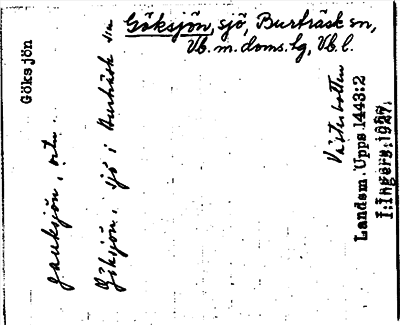 Göksjön, sjö, Burträsk sn,
Vb. m. doms. hg, Vb. l.
Göksjön
gauksjön,
Göksjön, sjö i Burträsk sn
Västerbotten
Landsm. Upps. 1443:2
I. Ingers. 1927.